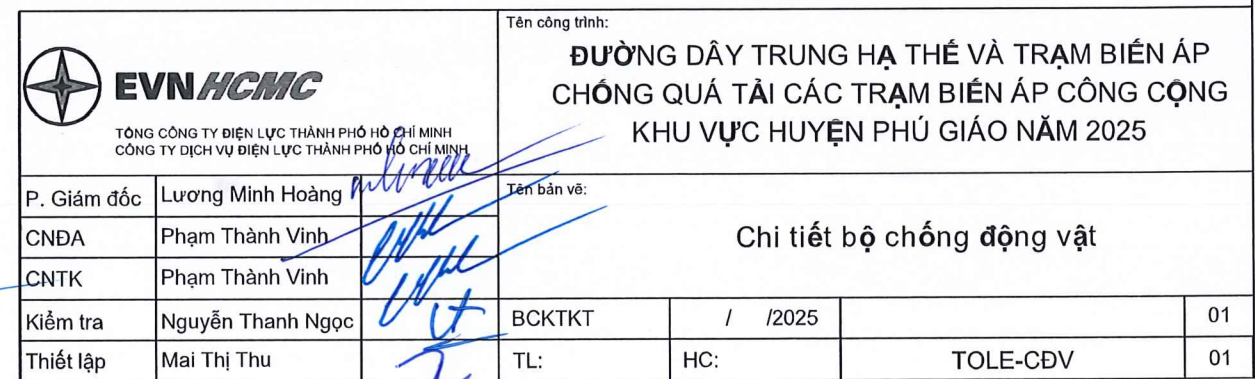 EVNHCMC
TỔNG CÔNG TY ĐIỆN LỰC THÀNH PHỐ HỒ CHÍ MINH
CÔNG TY DỊCH VỤ ĐIỆN LỰC THÀNH PHỐ HỒ CHÍ MINH
Tên công trình:
ĐƯỜNG DÂY TRUNG HẠ THẾ VÀ TRẠM BIẾN ÁP
CHỐNG QUÁ TẢI CÁC TRẠM BIẾN ÁP CÔNG CỘNG
KHU VỰC HUYỆN PHÚ GIÁO NĂM 2025
P. Giám đốc Lương Minh Hoàng
CNĐA Phạm Thành Vinh
CNTK Phạm Thành Vinh
Kiểm tra Nguyễn Thanh Ngọc
Thiết lập Mai Thị Thu
Tên bản vẽ:
Chi tiết bộ chống động vật
BCKTKT / /2025 01
TL: HC: TOLE-CĐV 01